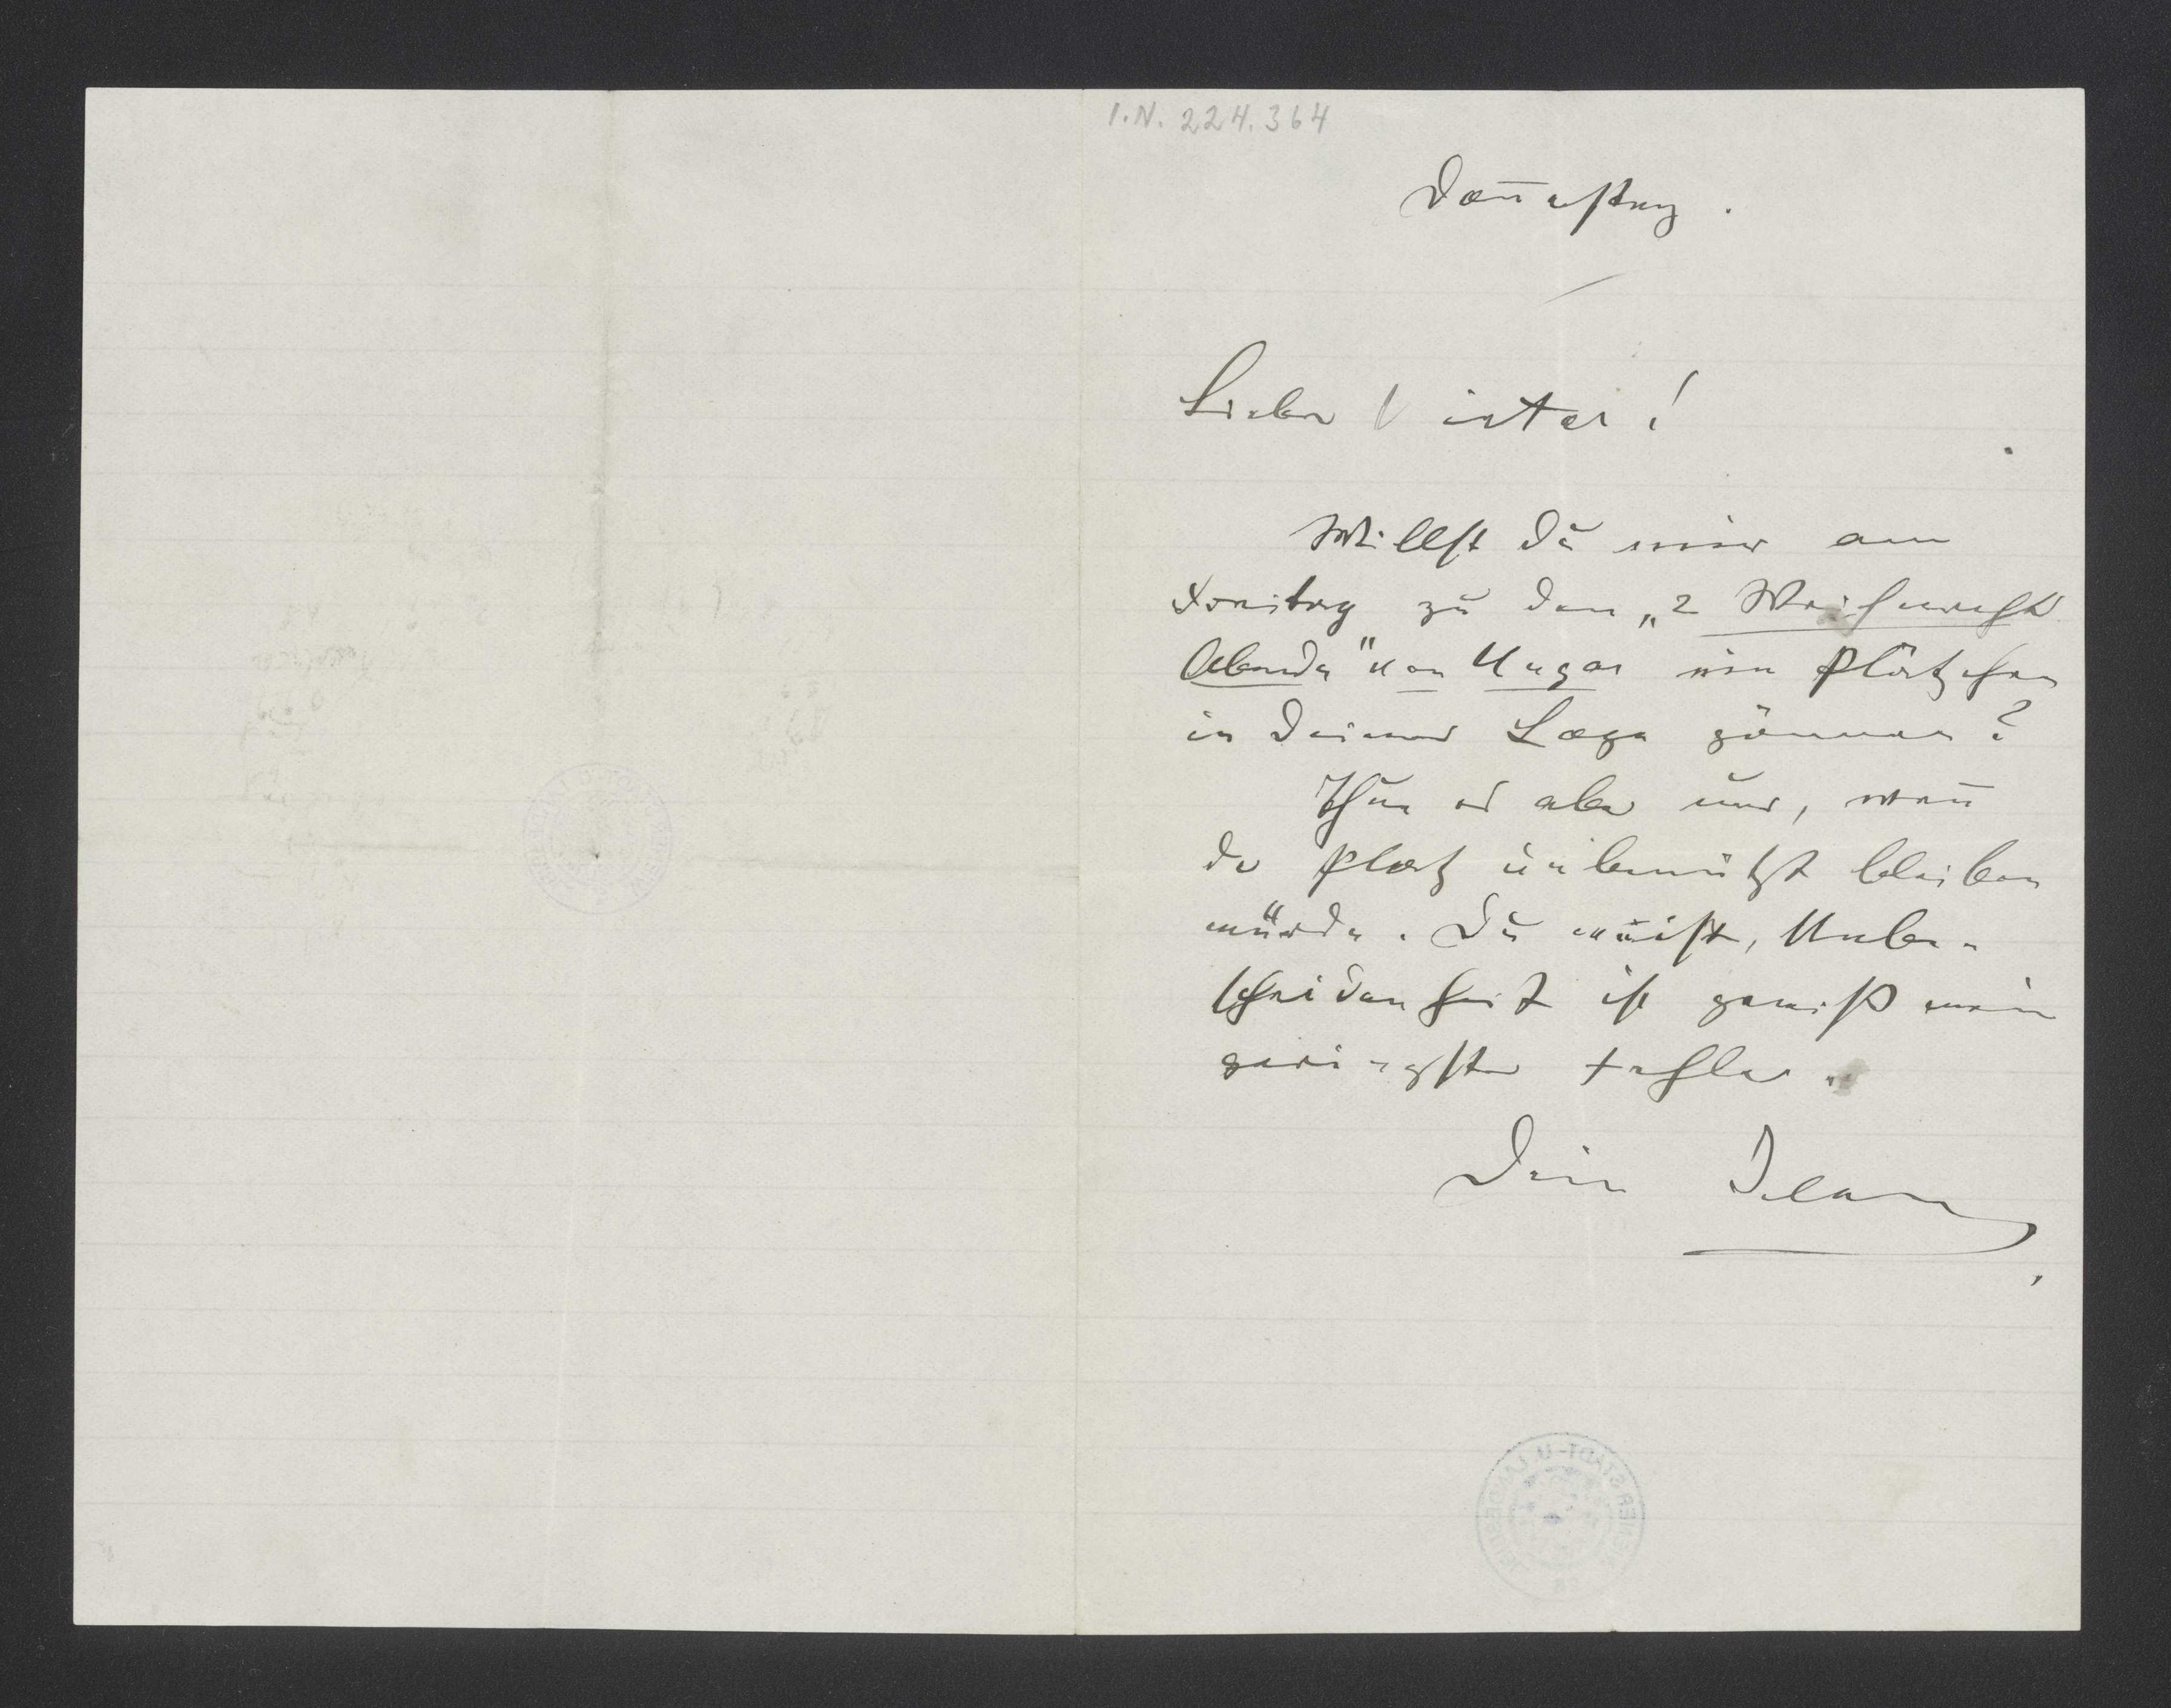 I.N. 224.364
Don̅erstag.
Lieber Victor!
Willst Du mir am
Freitag zu den „2 Weihnacht
Abende" von Unger ein Plätzchen
in Deiner Loge gönnen?
Thue es aber nur, wen̅
der Platz unbenützt bleiben
würde. Du weißt, Unbe-
scheidenheit ist gewiß mein
geringster Fehler.
Dein Jean